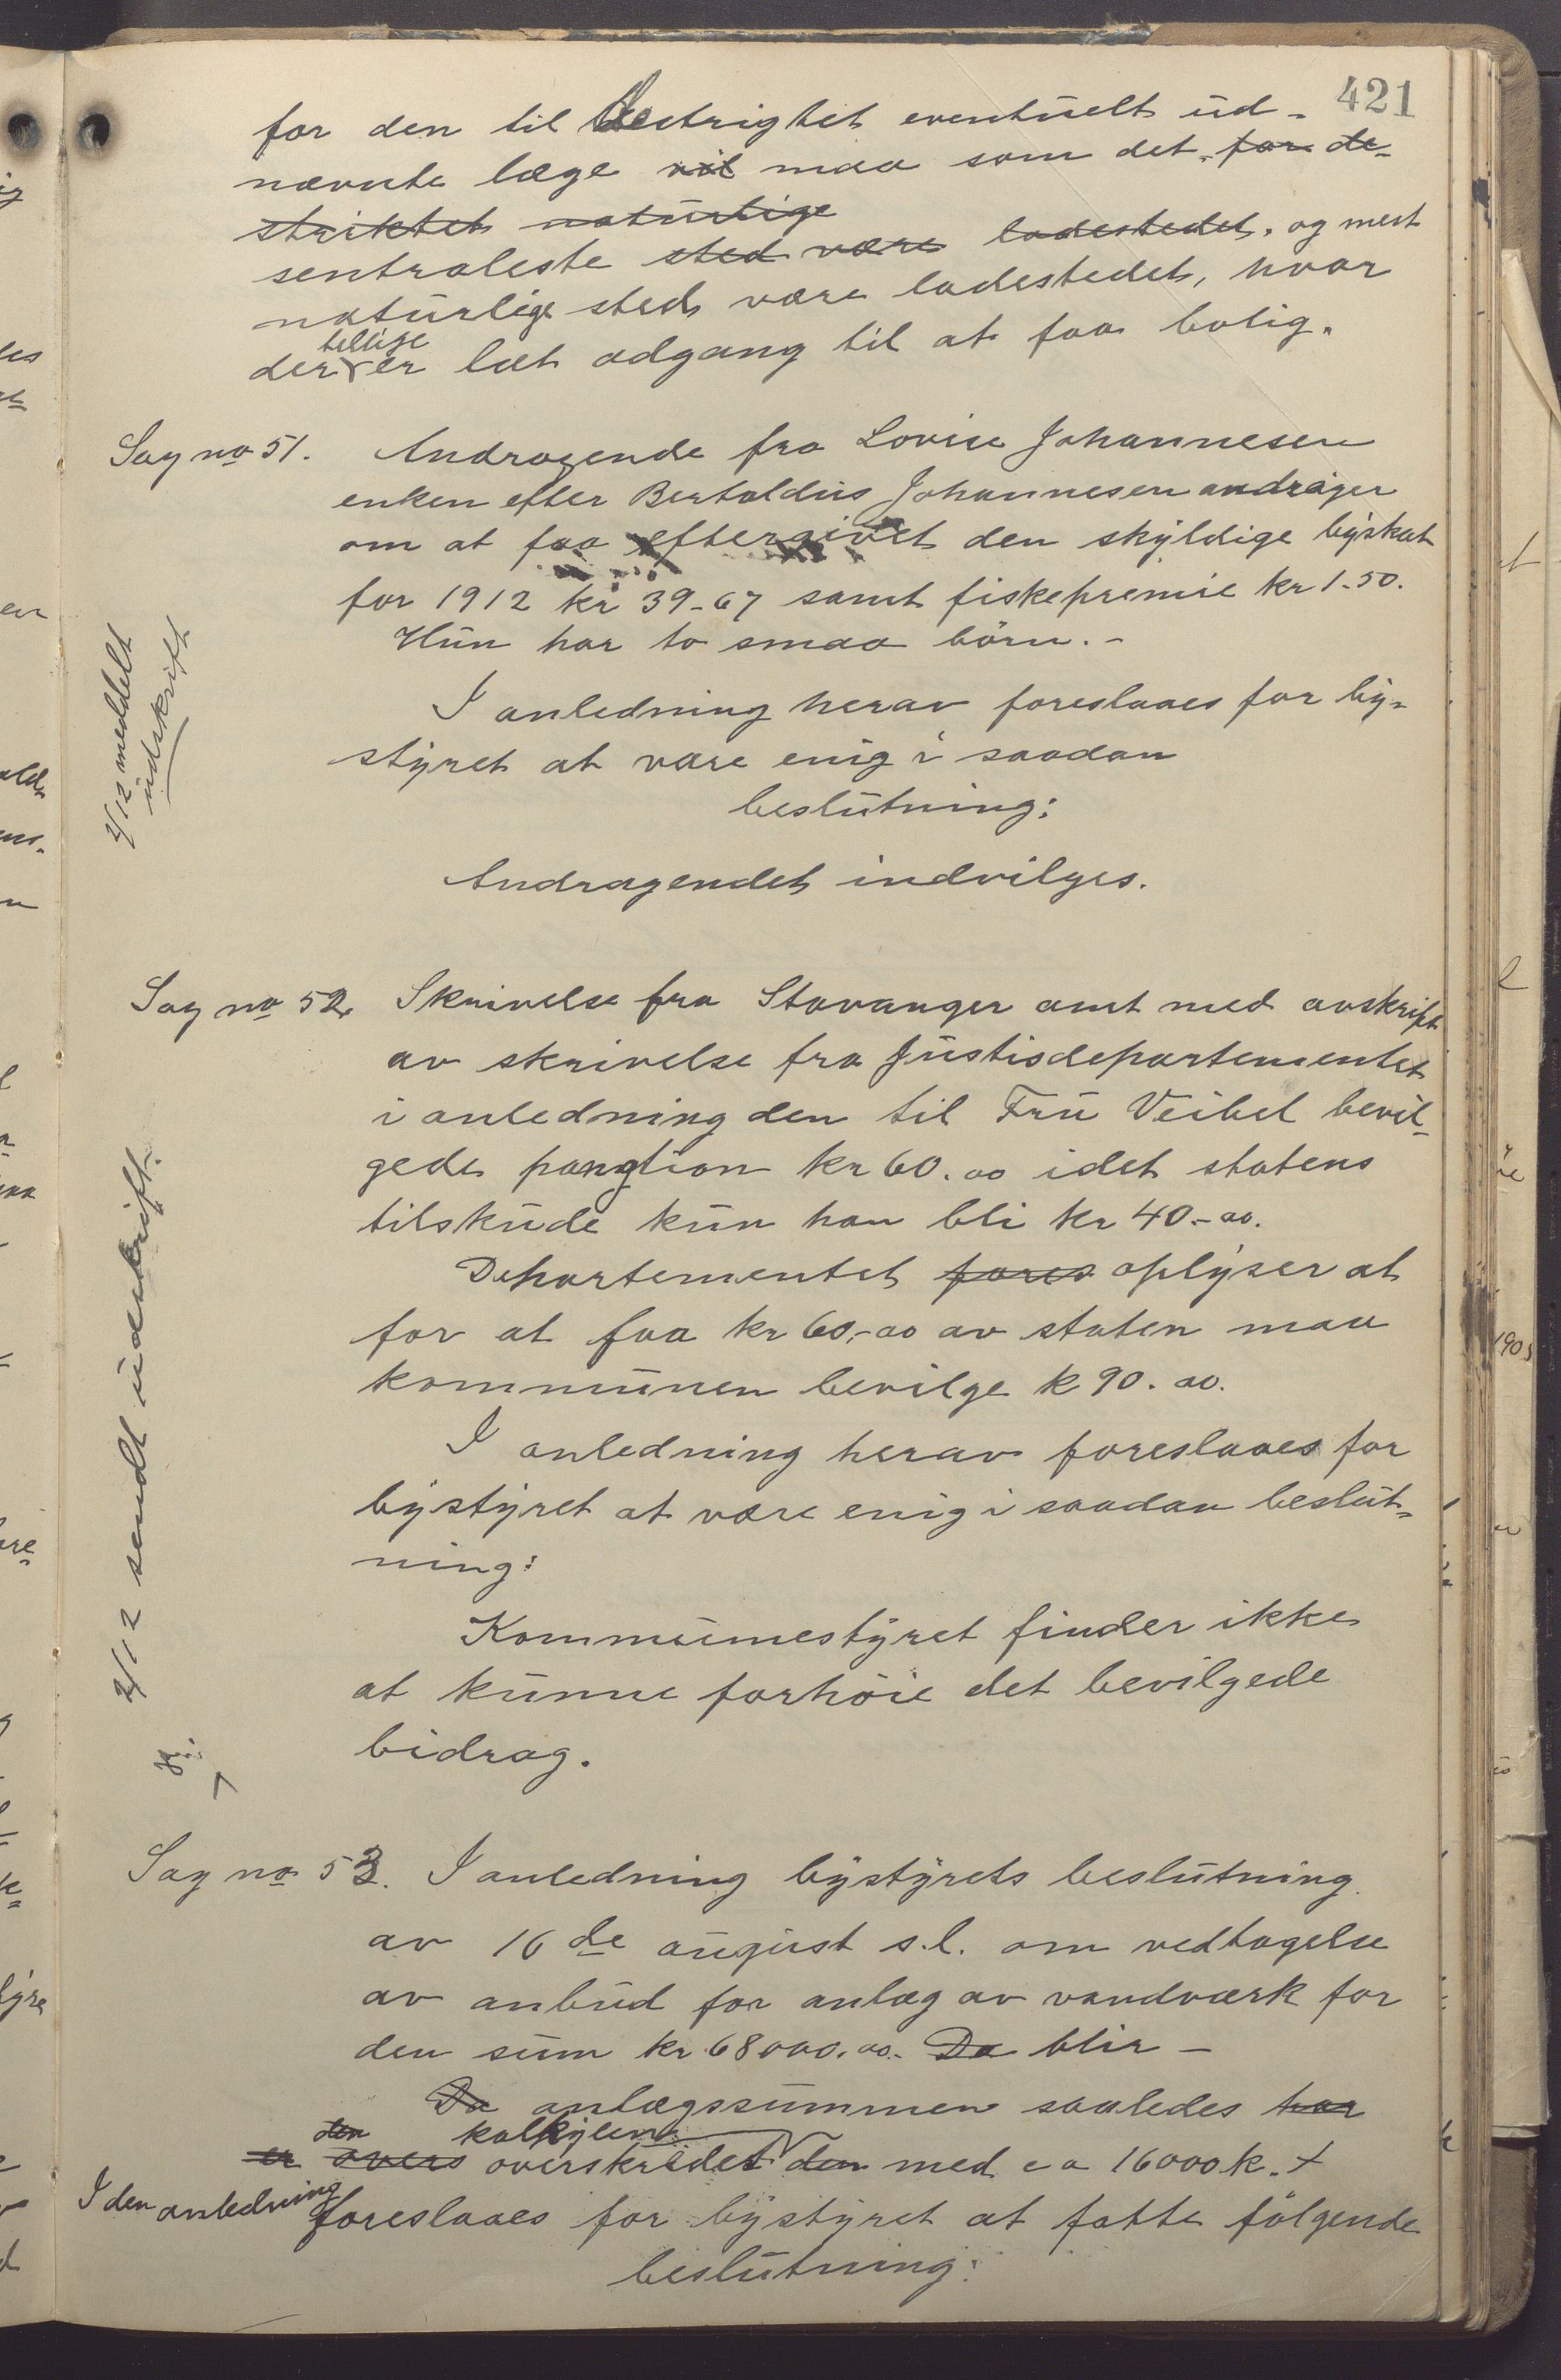 421
for den til destrigtet eventuelt ud-
nævnte læge vil maa som det for de-
striktet naturlige
sentraleste sted være ladestedet, og mest
naturlige sted være ladestedet, hvor
tillige
der er let adgang til at faa bolig.
Sag no 51. Andragende fra Lovise Johannesen
enken efter Bertoldus Johannesen andrager
om at faa eftergivet den skyldige byskat
for 1912 kr 39-67 samt fiskepremie kr 1-50.
Hun har to smaa börn.-
2/12 meddelt
udskrift
I anledning herav foreslaaes for by-
styret at være enig i saadan
beslutning:
Andragendet indvilges.
Sag no 52. Skrivelse fra Stavanger amt med avskrift
av skrivelse fra Justisdepartementet
i anledning den til Fru Veibel bevil-
gede pangtion kr 60.00 idet statens
tilskude kun han bli kr 40.-00.
Departementet fores oplyser at
for at faa kr 60,-00 av staten maa
kommunen bevilge k 90.00.
2/12 sendt udskrift.
I anledning herav foreslaaes for
bystyret at være enig i saadan beslut-
ning:
Kommunestyret finder ikke
at kunne forhöie det bevilgede
bidrag.
Sag no 53. I anledning bystyrets beslutning
av 16de august s.l. om vedtagelse
av anbud for anlæg av vandværk for
den sum kr 68000.00. Da blir -
Da anlægssummen saaledes har
den kalkylen
er overs overskridet den med ca 16000 k. +
I den anledning foreslaaes for bystyret at fatte fölgende
beslutning: